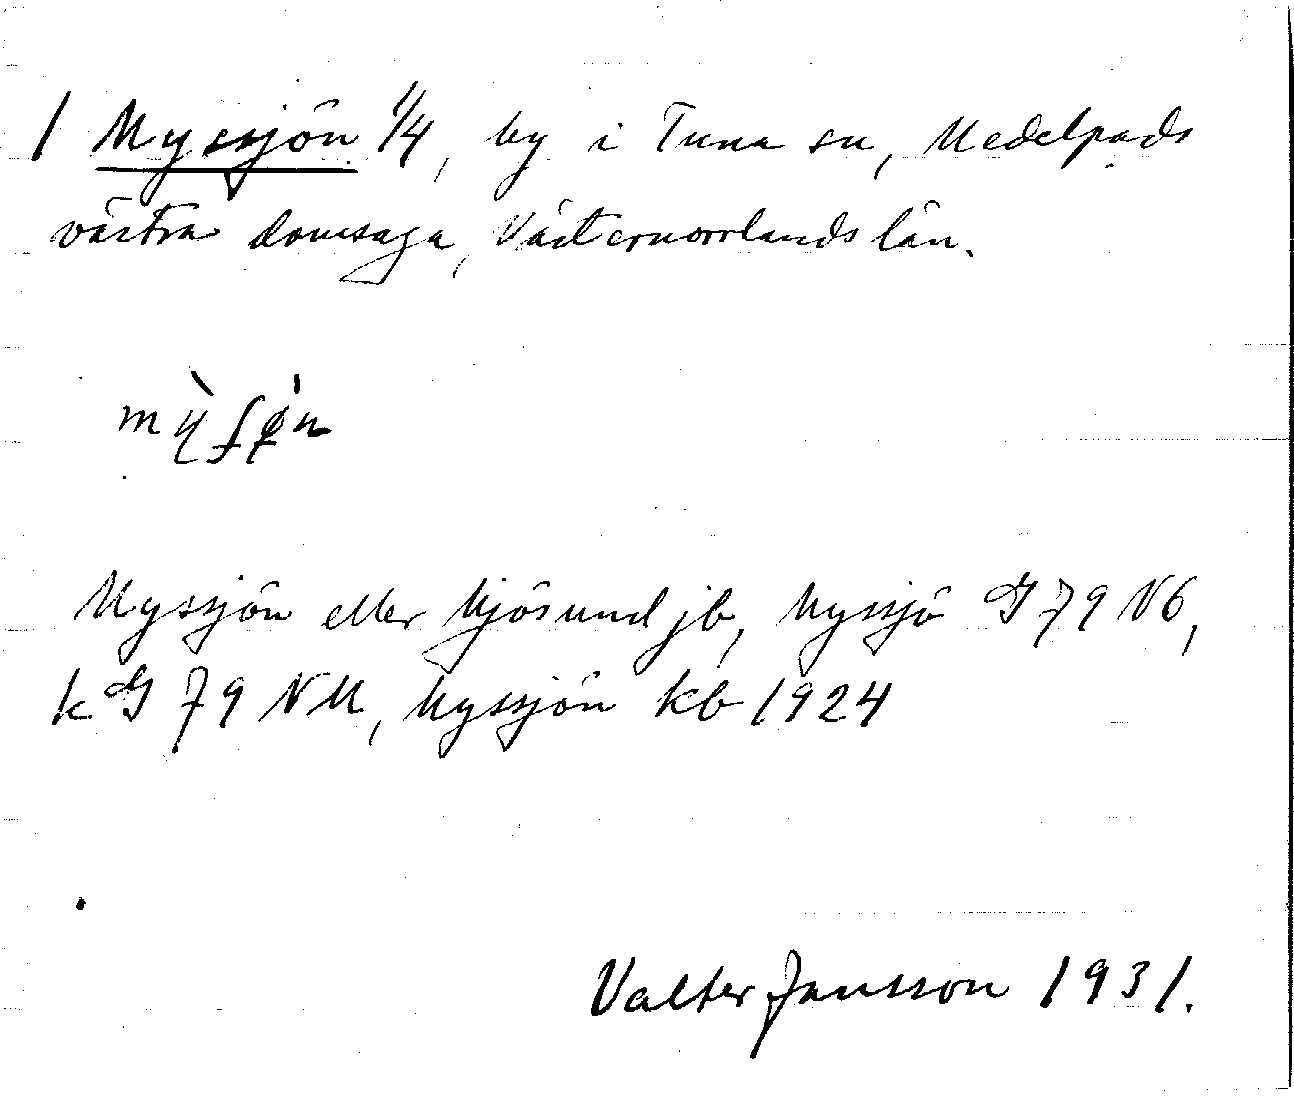 1 Myssjön 1/4, by i Tuna sn, Medelpads
västra domsaga, Västernorrlands län.
Myssjön eller Mjösund jb, Myssjö G 79 NO,
k G 79 NM, Myssjön kb 1924
Valter Jansson 1931.